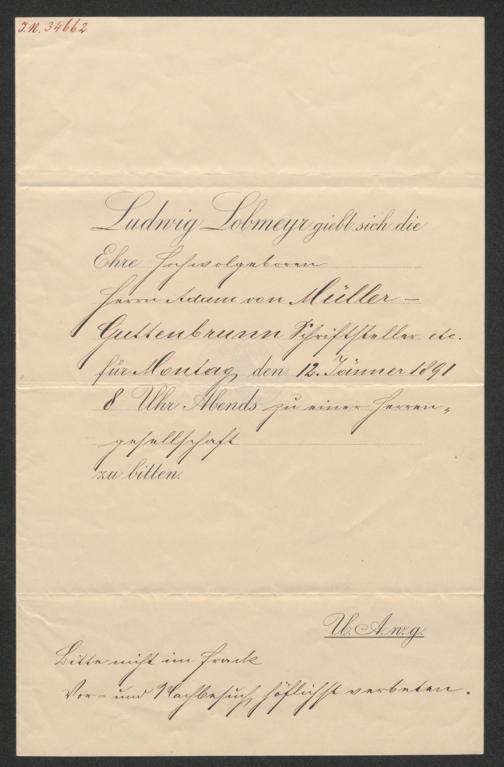 I.N. 34662
Ludwig Lobmeyr giebt sich die
Ehre Hochwolgeboren
Herrn Adam von Müller-
Guttenbrunn Schriftsteller etc.
für Montag, den 12. Jänner 1891
8 Uhr Abends zu einer Herren-
gesellschaft
zu bitten.
U. A. w. g.
Bitte nicht im Frack
Vor- und Nachbesuch höflichst verbeten.